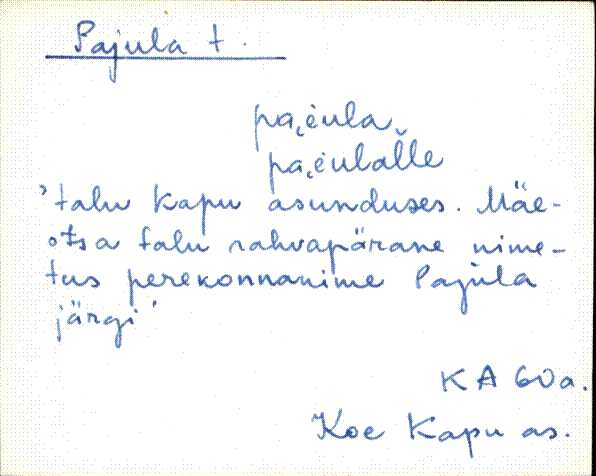 Pajula t.
pa͕i̇ula
pa͕i̇ulal̆le
'talu Kapu asunduses. Mäe-
otsa talu rahvapärane nime-
tus perekonnanime Pajula
järgi'
KA 60a.
Koe Kapu as.